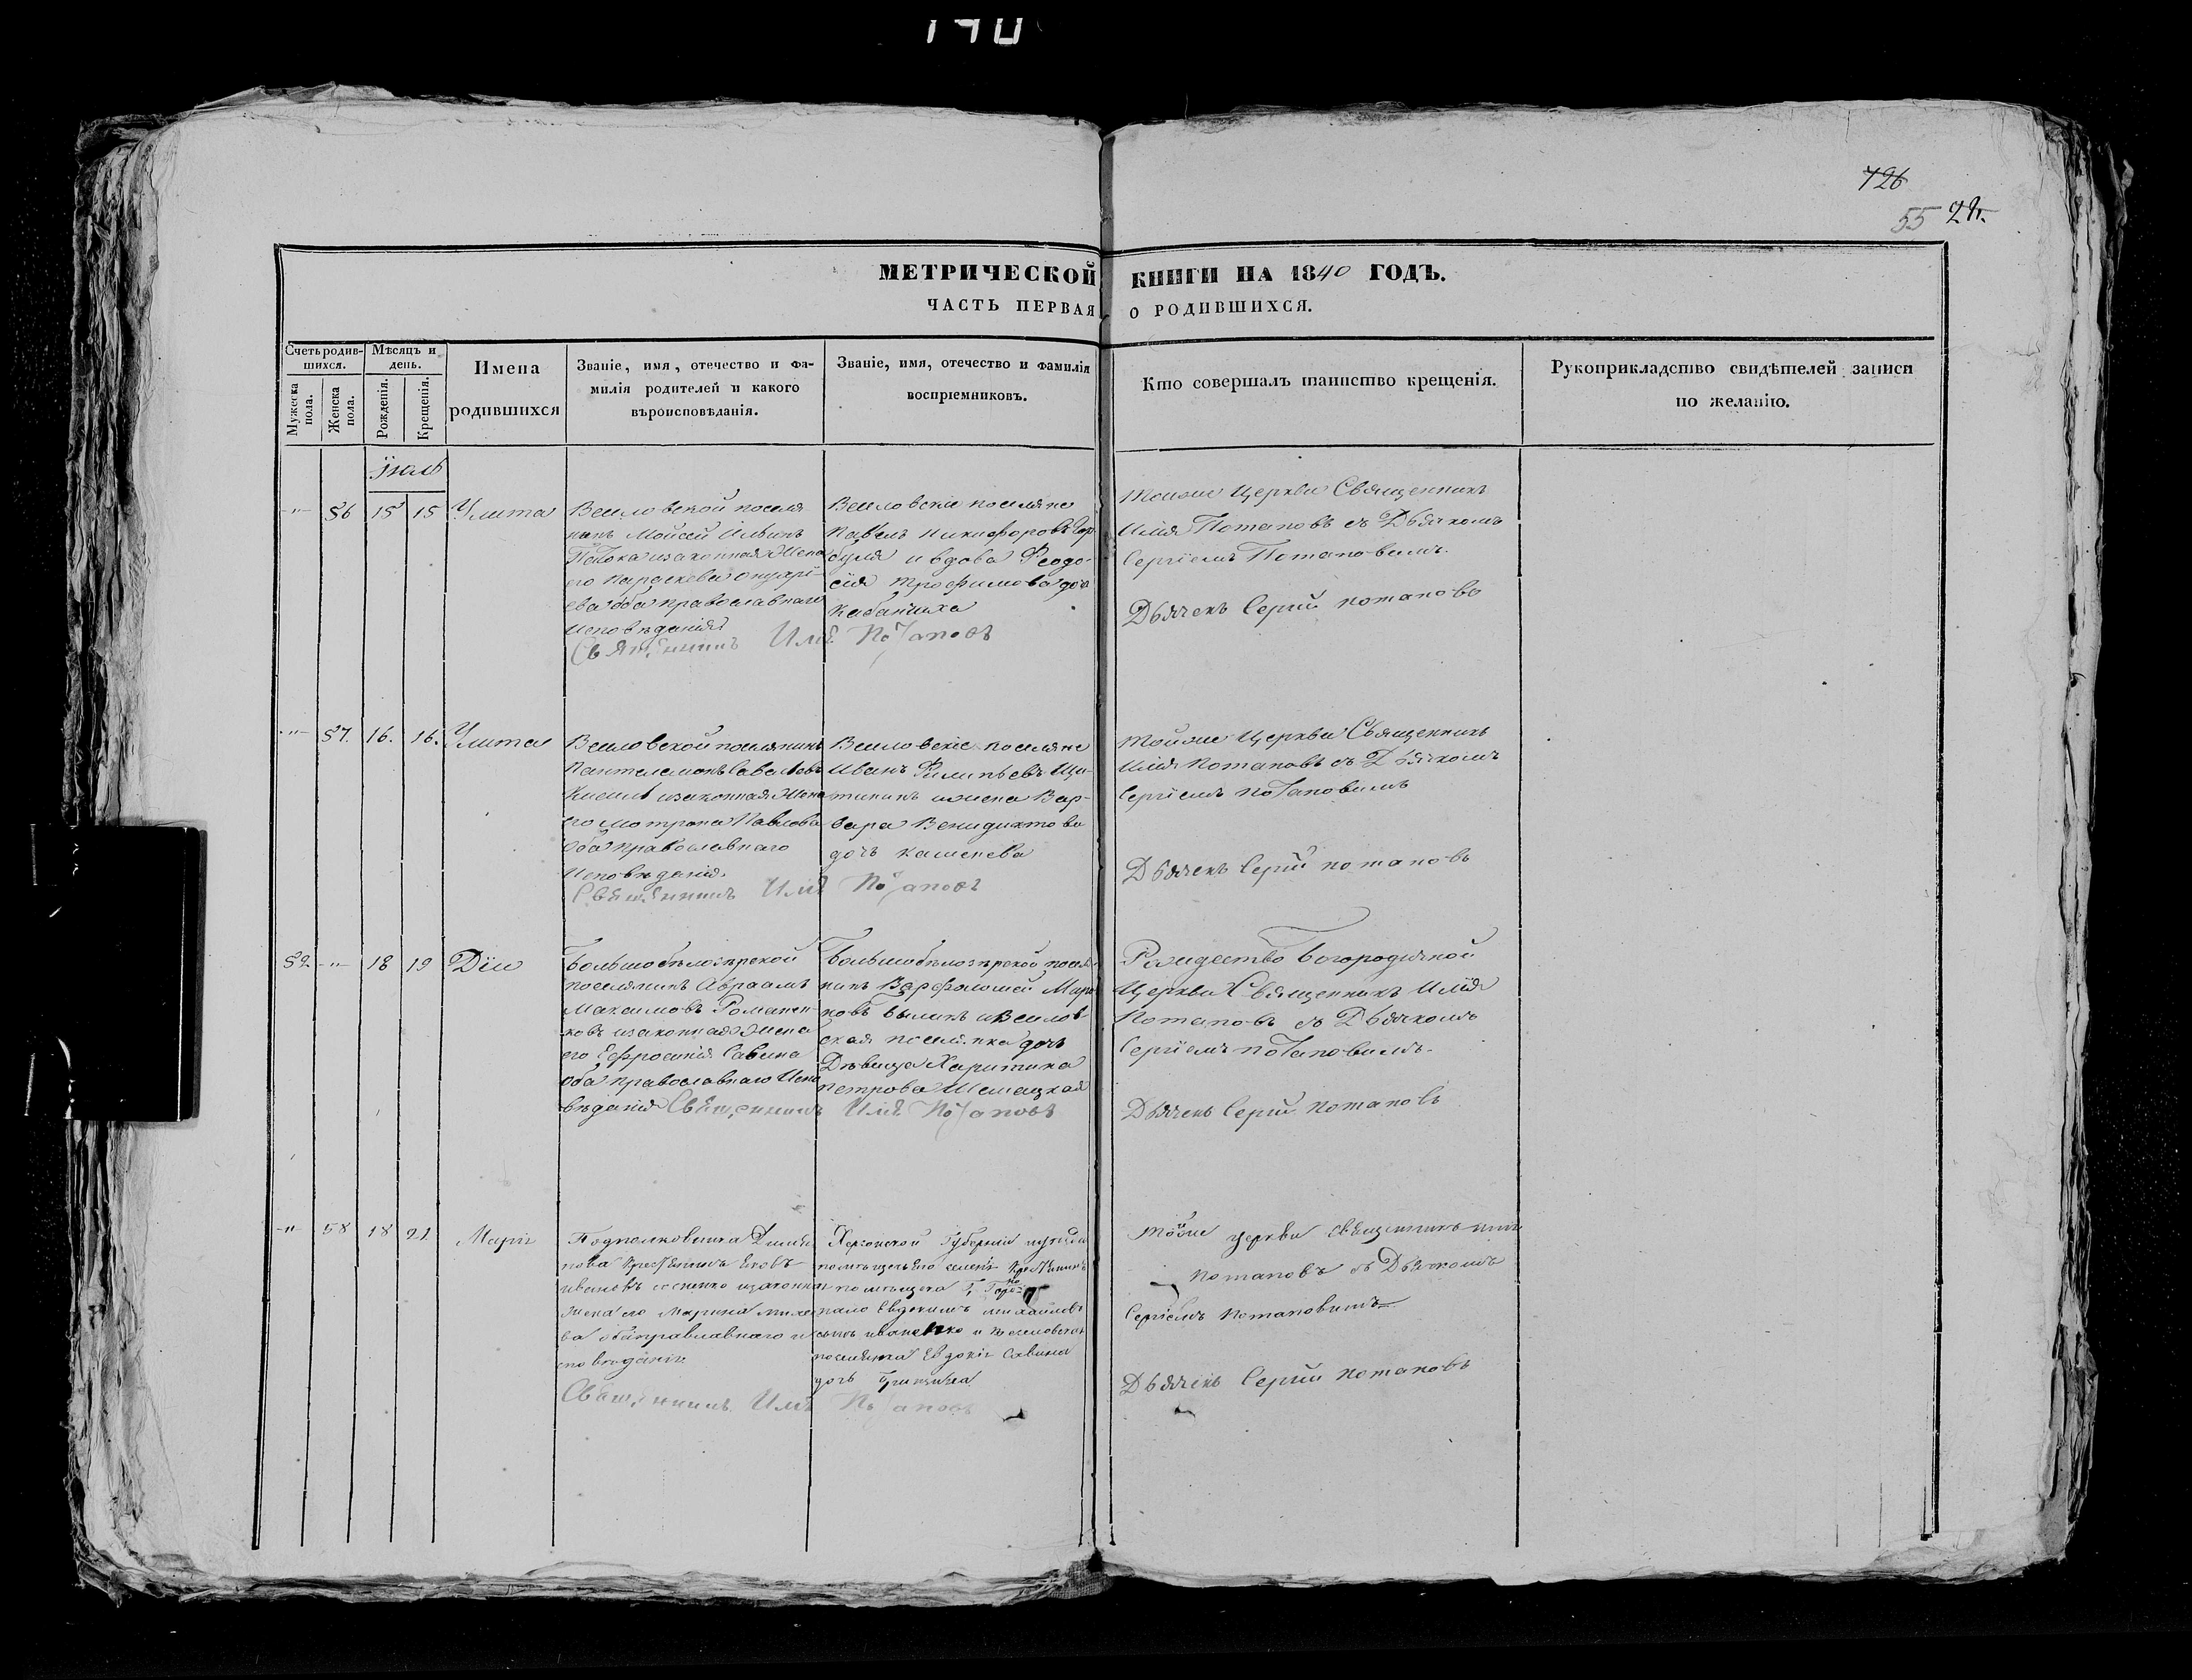 140
726
55 27.
МЕТРИЧЕСКОЙ КНИГИ НА 1840 ГОДЪ.
ЧАСТЬ ПЕРВАЯ О РОДИВШИХСЯ.
Счетъ родив-
шихся.
Мужеска пола.
Женска пола.
Мѣсяцъ и
день.
Рожденія.
Крещенія.
Имена
родившихся
Званіе, имя, отечество и фа-
милія родителей и какого
вѣроисповѣданія.
Званіе, имя, отечество и фамилія
воспріемниковъ.
Кто совершалъ таинство крещенія.
Рукоприкладство свидѣтелей записи
по желанію.
Іюль
-"- 56 15 15 Улита
Веиловской поселя
нинъ Мойсей Ильинъ
изаконная Жена
его Параскева
ева оба православнаго
исповѣданія
Веиловскіе поселяне
Павелъ Никифоровъ Гор
буля и вдова Феодо-
сія Трофимова доч
Кабачиха
Тойже Церкви Священникъ
Илія Потаповъ съ Дьячкомъ
Сергіемъ Потаповимъ.
Дьячекъ Сергій Потаповъ
Священникъ Илія Потаповъ
-"- 57. 16. 16. Улита
Веиловской поселянинъ
Пантелемонъ Савельевъ
Кисиль изаконная Жена
его Мотрона Павлова
оба православнаго
исповѣданія.
Веиловскіе поселяне
Иванъ Филипьевъ Щи-
тининъ ижена Вар-
вара Венидиктова
дочъ Кашенева
Тойже Церкви Священникъ
Илія Потаповъ съ Дьячкомъ
Сергіемъ Потаповимъ
Дьячекъ Сергій Потаповъ
Священникъ Илія Потаповъ
52 -"- 18 19 Дій
Большобѣлозѣрской
поселянинъ Авраамъ
Максимовъ Романен-
ковъ изаконная Жена
его Ефросинія Савина
оба православнаго Испо
вѣданія
Большобѣлозѣрской посел
нинъ Варфоломей Марк
новъ Билыкъ и Веилов
ская поселянка дочь
Дѣвица Харитина
Петрова Шемацкая
Рождество Богородичной
Церкви Священникъ Илія
Потаповъ съ Дьячкомъ
Сергіемъ Потаповимъ.
Дьячекъ Сергій Потаповъ
Священникъ Илія Потаповъ
-"- 58 18 21 Марія
Подполковника
нова Крестянинъ Яковъ
Ивановъ изаконная
Жена его Марина
ва оба правлавнаго и
сповѣданія
Херсонской Губерніи
помѣщечьяго Крестянинъ
помѣщека Г,
Евдокимъ Михайловъ
сынъ Иваненко и Веиловская
поселянка Евдокія Савина
дочъ
Тойже церкви Священникъ Илія
Потаповъ съ Дьячкомъ
Сергіемъ Потаповимъ
Дьячекъ Сергій Потаповъ
Священникъ Илія Потаповъ